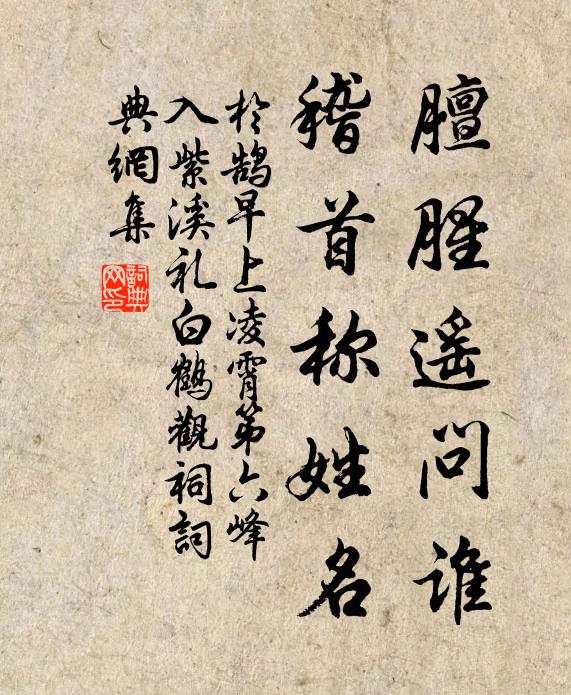 膻腥遥问谁
稽首称姓名
於鹄早上凌霄第六峰
入紫溪礼白鹤觀祠詞
典網集
詞典網印